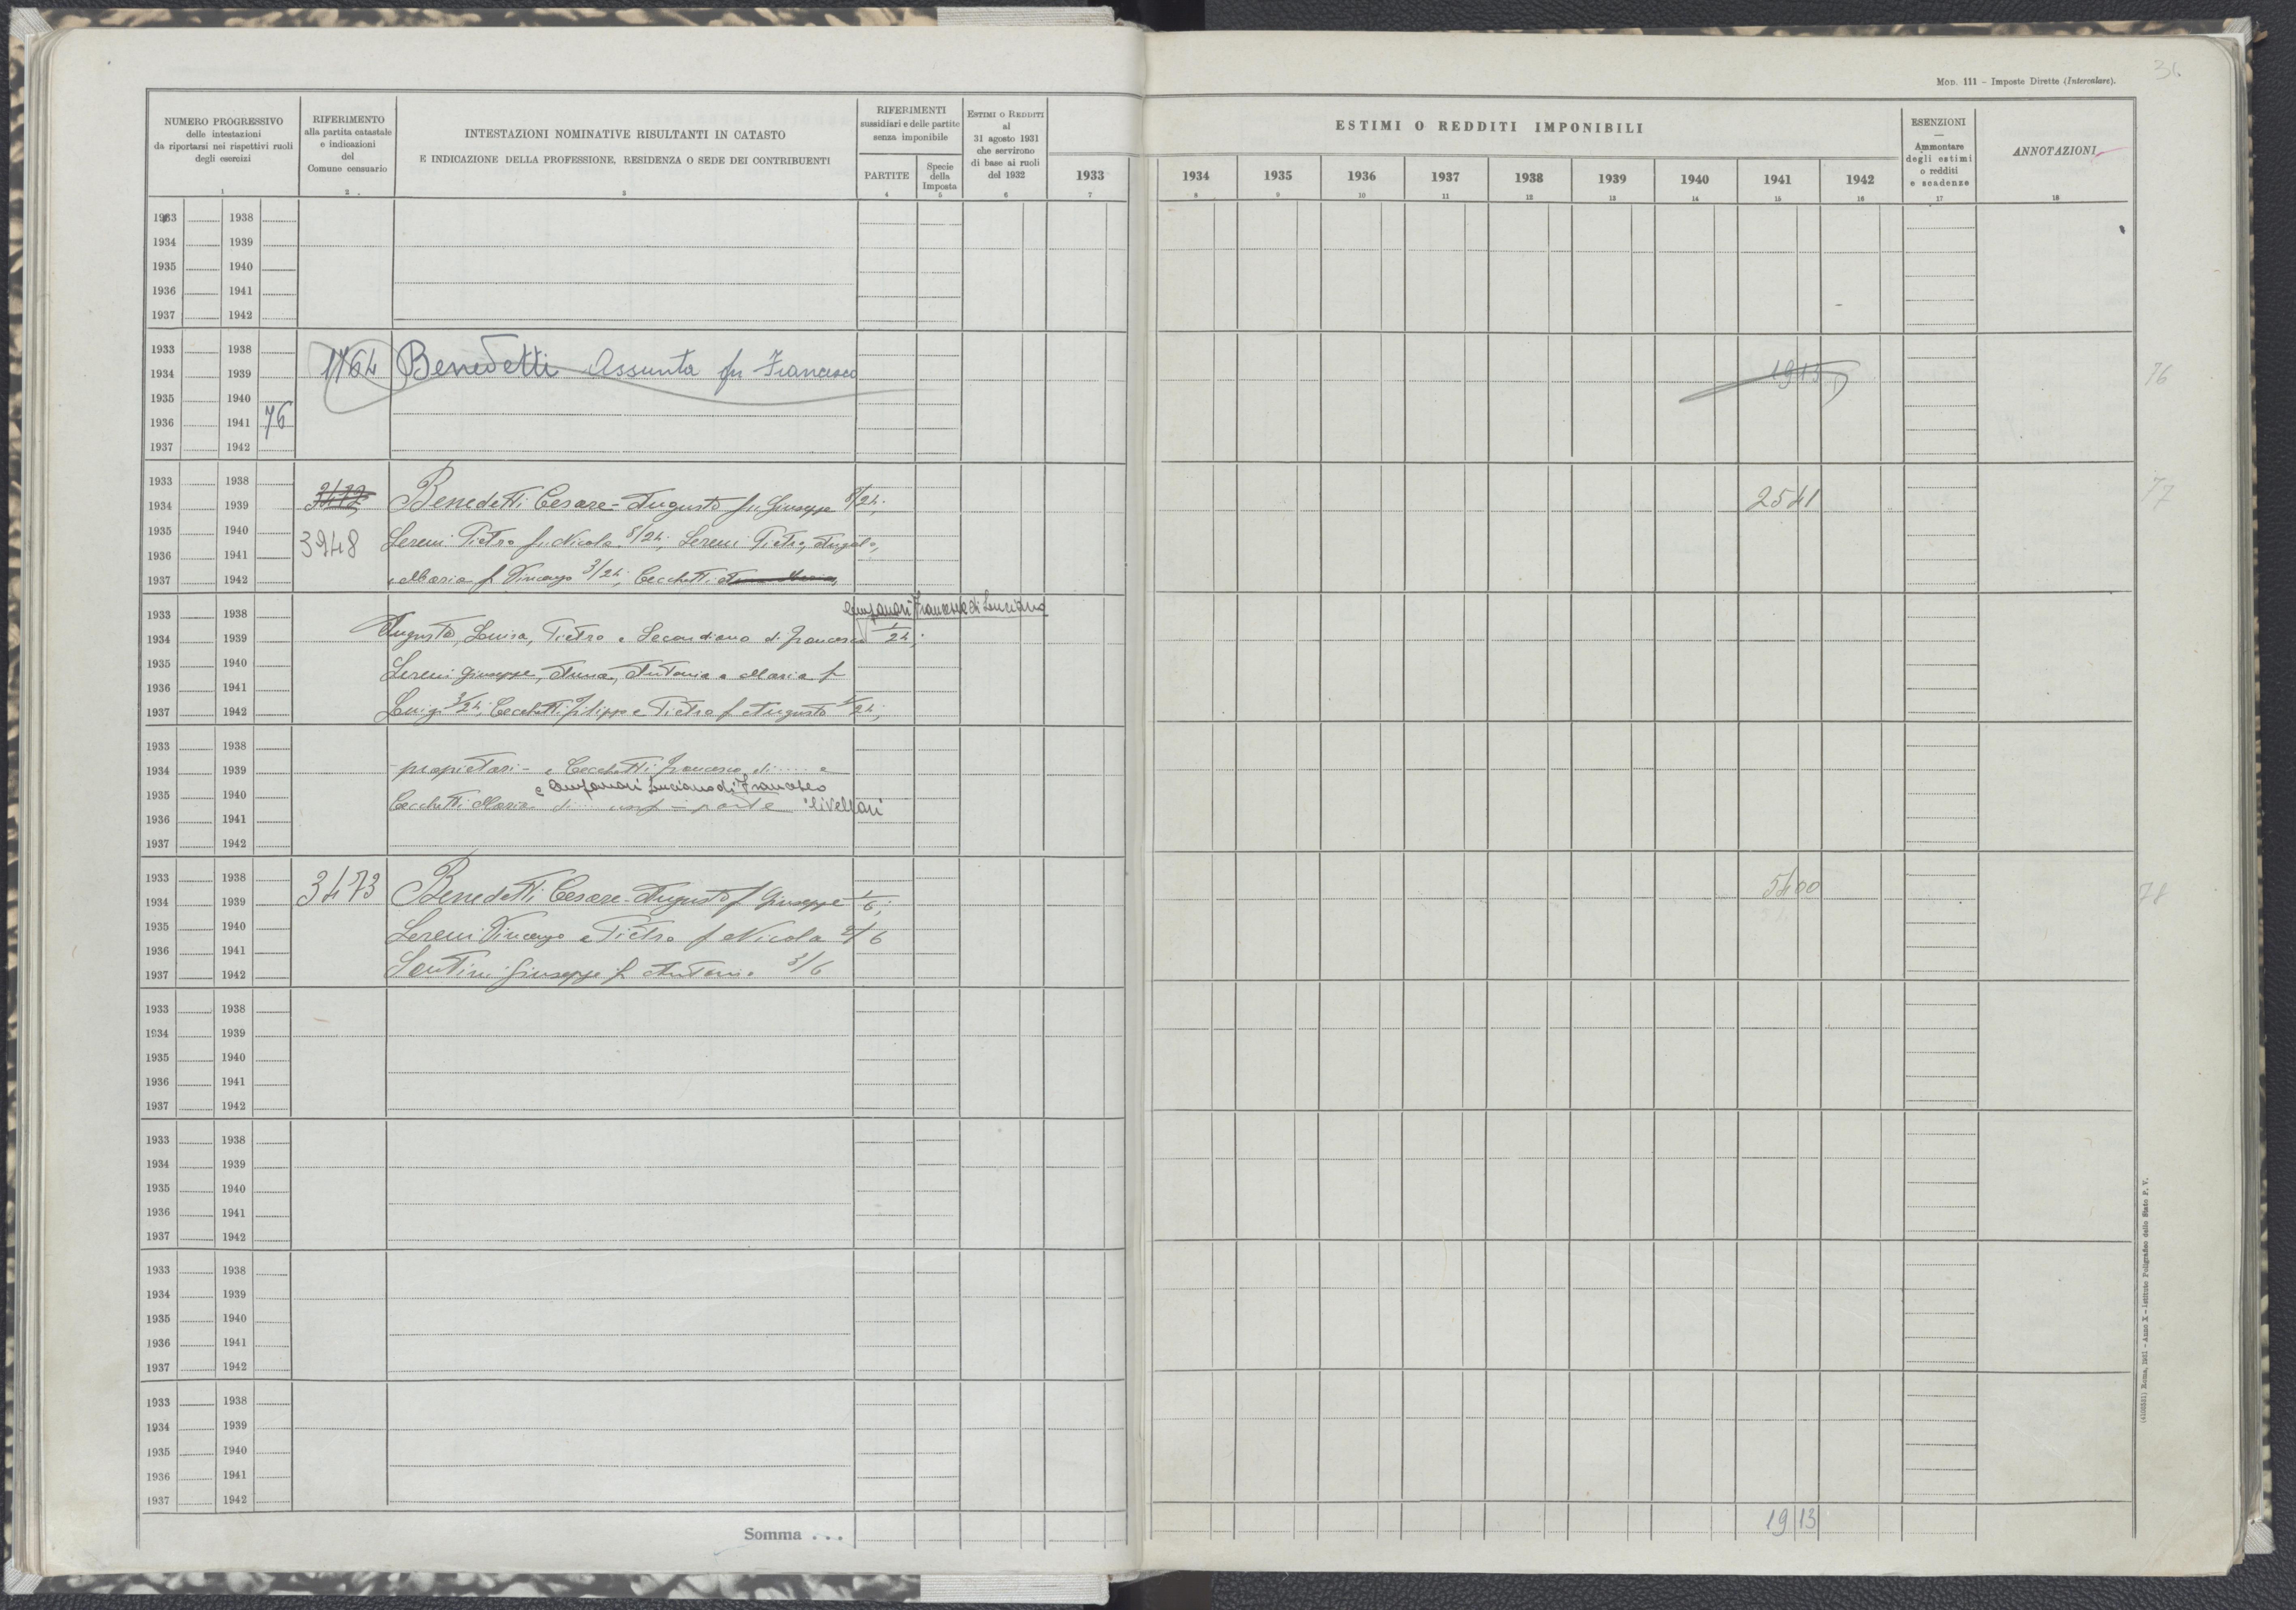 31
MOD. 111 – Imposte Dirette (Intercalare).
NUMERO PROGRESSIVO delle intestazioni da riportarsi nei rispettivi ruoli degli esercizi
RIFERIMENTO alla partita catastale e indicazioni del Comune censuario
INTESTAZIONI NOMINATIVE RISULTANTI IN CATASTO
E INDICAZIONE DELLA PROFESSIONE, RESIDENZA O SEDE DEI CONTRIBUENTI
RIFERIMENTI sussidiari e delle partite senza imponibile
PARTITE
Specie della Imposta
ESTIMI O REDDITI al 31 agosto 1931 che servirono di base ai ruoli del 1932
ESTIMI O REDDITI IMPONIBILI
1933 1934 1935 1936 1937 1938 1939 1940 1941 1942
ESENZIONI — Ammontare degli estimi o redditi e scadenze
ANNOTAZIONI
1 2 3 4 5 6 7 8 9 10 11 12 13 14 15 16 17 18
1933 1938
1934 1939
1935 1940
1936 1941
1937 1942
1933 1938
1934 1939 1764 Benedetti Assunta fu Francesco 1915 76
1935 1940
1936 1941 76
1937 1942
1933 1938
1934 1939 3472 Benedetti Cesare-Augusto fu Giuseppe 8/24; 2541 77
1935 1940 3948 Sereni Pietro fu Nicola 5/24; Sereni Pietro, Angelo,
1936 1941
1937 1942 e Maria f Vincenzo 3/24; Cecchetti
1933 1938 Francesco di Luciano
1934 1939 Augusto, Luisa, Pietro e Secondiano di Francesco 1/24;
1935 1940 Sereni Giuseppe, Anna, Antonia e Maria f
1936 1941
1937 1942 Luigi 3/24; Cecchetti Filippo e Pietro f Augusto /24;
1933 1938
1934 1939 propietari - e Cecchetti Francesco di ..... e
1935 1940 e Luciano di Francesco
Cecchetti Maria di ... parte livellari
1936 1941
1937 1942
1933 1938
1934 1939 3473 Benedetti Cesare-Augusto f Giuseppe 1/6; 5400 78
1935 1940 Sereni Vincenzo e Pietro f Nicola 2/6
1936 1941
1937 1942 Santini Giuseppe f Antonio 3/6
1933 1938
1934 1939
1935 1940
1936 1941
1937 1942
1933 1938
1934 1939
1935 1940
1936 1941
1937 1942
1933 1938
1934 1939
1935 1940
1936 1941
1937 1942
1933 1938
1934 1939
1935 1940
1936 1941
1937 1942
Somma . . . 1913
(4106531) Roma, 1931 – Anno X – Istituto Poligrafico dello Stato P. V.